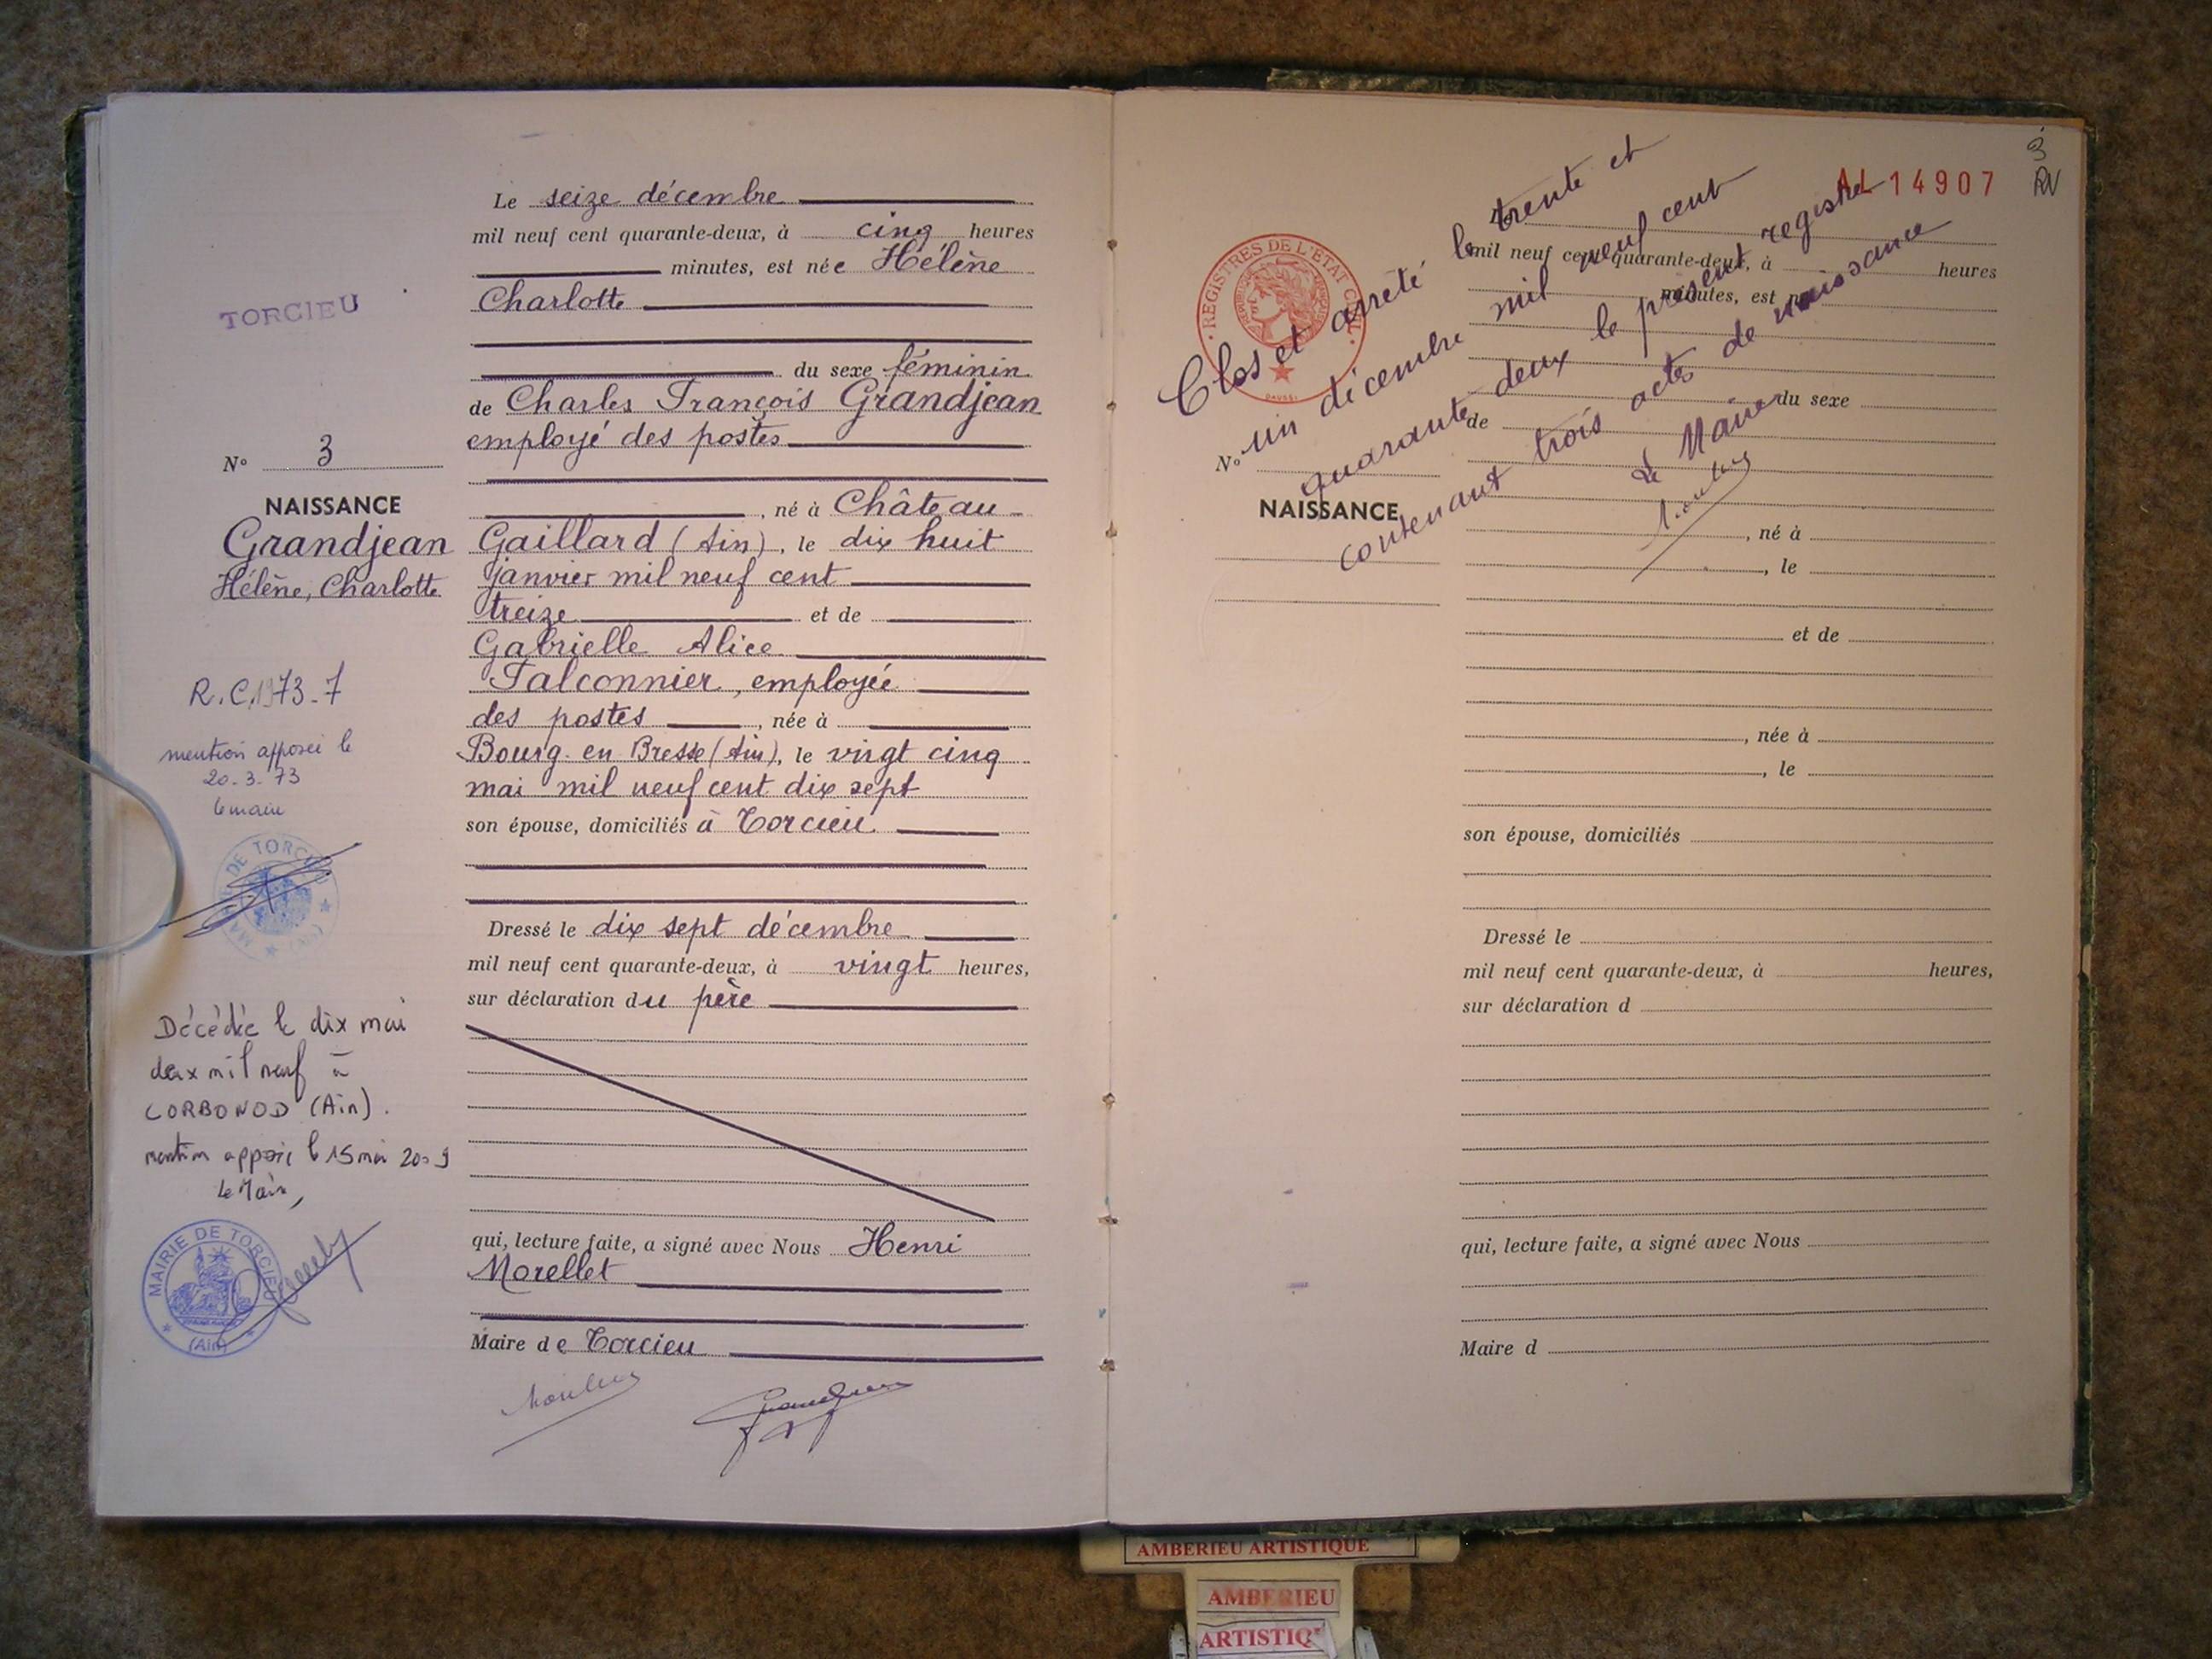 TORCIEU
N° 3
NAISSANCE
Grandjean
Hélène, Charlotte
R.C. 1973-7
mention apposée le
20-3-73
le maire
MAIRIE DE TORCIEU (AIN)
Décédée le dix mai
deux mil neuf à
CORBONOD (Ain).
mention apposée le 15 mai 2009
Le Maire,
MAIRIE DE TORCIEU
(Ain)
Le seize décembre
mil neuf cent quarante-deux, à cinq heures
minutes, est née Hélène
Charlotte
du sexe féminin
de Charles François Grandjean
employé des postes
, né à Château-
Gaillard (Ain), le dix huit
janvier mil neuf cent
treize et de
Gabrielle Alice
Falconnier, employée
des postes , née à
Bourg-en Bresse (Ain), le vingt cinq
mai mil neuf cent dix sept
son épouse, domiciliés à Torcieu
Dressé le dix sept décembre
mil neuf cent quarante-deux, à vingt heures,
sur déclaration du père
qui, lecture faite, a signé avec Nous Henri
Morellet
Maire de Torcieu
3
RV
AL 14907
REGISTRES DE L'ETAT CIVIL
Clos et arrêté le trente et
un décembre mil neuf cent
quarante deux le présent registre
contenant trois actes de naissance
Le Maire
mil neuf cent quarante-deux, à heures
minutes, est né
du sexe
de
N°
NAISSANCE
, né à
, le
et de
, née à
, le
son épouse, domiciliés
Dressé le
mil neuf cent quarante-deux, à heures,
sur déclaration d
qui, lecture faite, a signé avec Nous
Maire d
AMBERIEU ARTISTIQUE
AMBERIEU
ARTISTIQ